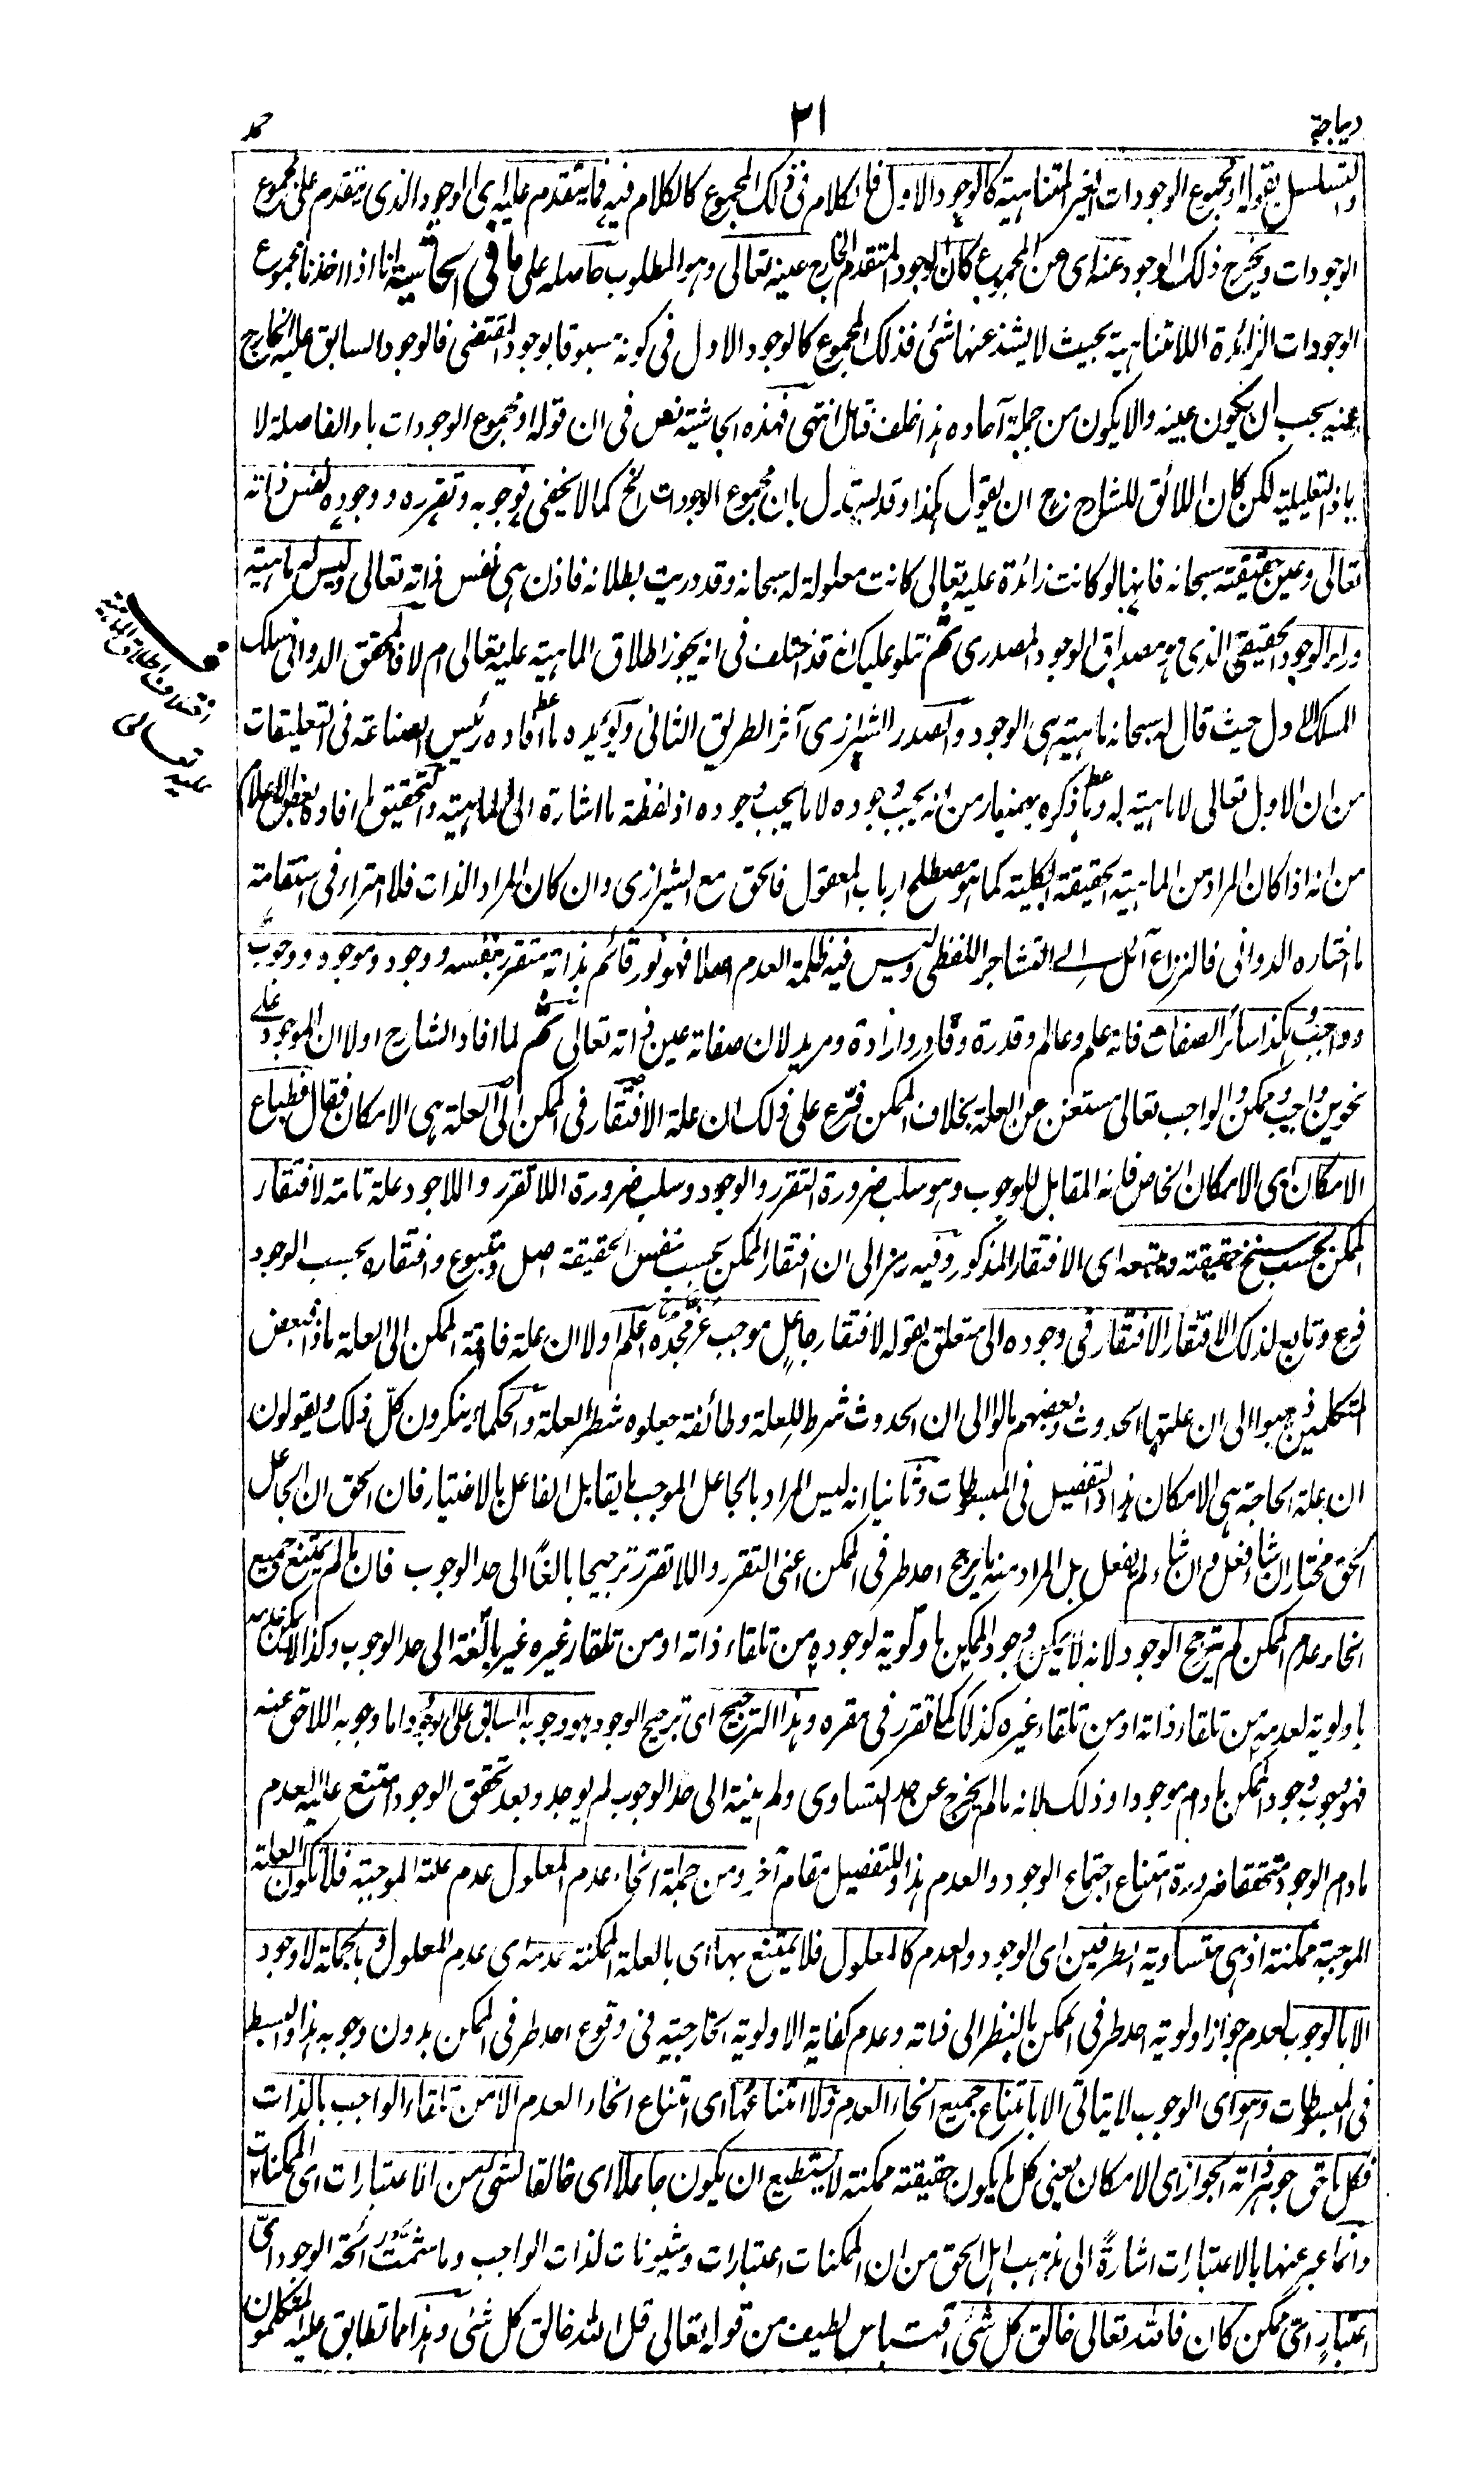 ديباجة
٢١
حمد
والتسلسل بقوله او مجموع الوجودات الغير المتناهية كالوجود الاول فالكلام فى ذلك المجموع كالكلام فيه فما يتقدم عليه اى الوجود الذى يتقدم على مجموع
الوجودات ويخرج ذلك الوجود عنه اى عن المجموع كان الوجود المتقدم الخارج عينه تعالى وهو المطلوب حاصله على ما فى الحاشية انا اذا اخذنا مجموع
الوجودات الزائدة اللامتناهية بحيث لا يشذ عنها شئ فذلك المجموع كالوجود الاول فى كونه مسبوقا بوجود المقتضى فالوجود السابق عليه الخارج
عنه يجب ان يكون عينه والا يكون من جملة آحاده هذا خلف فتامل انتهى فهذه الحاشية نص فى ان قوله او مجموع الوجودات باو الفاصلة لا
باذ التعليلية لكن كان اللائق للشارح رح ان يقول هكذا وقد يستدل بان مجموع الوجودات الخ كما لا يخفى فوجوبه وتقرره ووجوده نفس ذاته
تعالى وعين حقيقته سبحانه فانها لو كانت زائدة عليه تعالى كانت معلولة له سبحانه وقد دريت بطلانه فاذن هى نفس ذاته تعالى وليس له ماهية
وراء الوجود الحقيقى الذى هو مصداق الوجود المصدرى ثم نتلو عليك انه قد اختلف فى انه يجوز اطلاق الماهية عليه تعالى ام لا فالمحقق الدوانى سلك
المسلك الاول حيث قال له سبحانه ماهية هى الوجود والصدر الشيرازى آثر الطريق الثانى ويؤيده ما افاده رئيس الصناعة فى التعليقات
من ان الاول تعالى لا ماهية له وما ذكره بهمنيار من انه يجب وجوده لا ما يجب وجوده اذ لفظة ما اشارة الى الماهية والتحقيق ما افاده بعض الاعلام
من انه اذا كان المراد من الماهية الحقيقة الكلية كما هو مصطلح ارباب المعقول فالحق مع الشيرازى وان كان المراد الذات فلا امتراء فى استقامة
ما اختاره الدوانى فالنزاع آئل الى التشاجر اللفظى وليس فيه ظلمة العدم اصلا فهو نور قائم بذاته متقرر بنفسه ووجود وموجود ووجوب
وواجب وهكذا سائر الصفات فانه علم وعالم وقدرة وقادر وارادة ومريد لان صفاته عين ذاته تعالى ثم لما افاد الشارح اولا ان الموجود على
نحوين واجب وممكن والواجب تعالى مستغن عن العلة بخلاف الممكن فرّع على ذلك ان علة الافتقار فى الممكن الى العلة هى الامكان فقال فطباع
الامكان اى الامكان الخاص فانه المقابل للوجوب وهو سلب ضرورة التقرر والوجود وسلب ضرورة اللاتقرر واللاوجود علة تامة لافتقار
الممكن بحسب سنخ حقيقته ويتبعه اى الافتقار المذكور وفيه رمز الى ان افتقار الممكن بحسب نفس الحقيقة اصل ومتبوع وافتقاره بحسب الوجود
فرع وتابع لذلك الافتقار الافتقار فى وجوده الى متعلق بقوله لافتقار جاعل موجب عز مجده اعلم اولا ان علة فاقة الممكن الى العلة ماذا فبعض
المتكلمين ذهبوا الى ان علتها الحدوث وبعضهم مالوا الى ان الحدوث شرط للعلة وطائفة جعلوه شطر العلة والحكماء ينكرون كلّ ذلك ويقولون
ان علة الحاجة هى الامكان هذا والتفصيل فى المبسوطات وثانيا انه ليس المراد بالجاعل الموجب ما يقابل الفاعل بالاختيار فان الحق ان الجاعل
الحق مختار ان شاء فعل وان شاء لم يفعل بل المراد منه ما يرجح احد طرفى الممكن اعنى التقرر واللاتقرر ترجيحا بالغًا الى حد الوجوب فان ما لم يمتنع جميع
انحاء عدم الممكن لم يترجح الوجود لانه لا يمكن وجود الممكن باولوية لوجوده من تلقاء ذاته او من تلقاء غيره غير بالغة الى حد الوجوب وكذا لا يمكن عدمه
باولوية لعدمه من تلقاء ذاته او من تلقاء غيره كذلك كما تقرر فى مقره وهذا الترجيح اى ترجيح الوجود هو وجوبه السابق على الوجود واما وجوبه اللاحق عنه
فهو وجوب وجود الممكن ما دام موجودا وذلك لانه ما لم يخرج عن حد التساوى ولم ينته الى حد الوجوب لم يوجد وبعد تحقق الوجود امتنع عليه العدم
ما دام الوجود متحققا ضرورة امتناع اجتماع الوجود والعدم هذا وللتفصيل مقام آخر ومن جملة انحاء عدم المعلول عدم علته الموجبة فلا تكون العلة
الموجبة ممكنة اذ هى متساوية الطرفين اى الوجود والعدم كالمعلول فلا يمتنع بها اى بالعلة الممكنة عدمه اى عدم المعلول وبالجملة لا وجود
الا بالوجوب لعدم جواز اولوية احد طرفى الممكن بالنظر الى ذاته وعدم كفاية الاولوية الخارجية فى وقوع احد طرفى الممكن بدون وجوبه هذا والبسط
فى المبسوطات وهو اى الوجوب لا يتاتى الا بامتناع جميع انحاء العدم ولا امتناعها اى امتناع انحاء العدم الا من تلقاء الواجب بالذات
فكل ما حق جوهر ذاته الجواز اى الامكان يعنى كل ما يكون حقيقته ممكنة لا يستطيع ان يكون جاعلا اى خالقا لشئ من الاعتبارات اى الممكنات
وانما عبر عنها بالاعتبارات اشارةً الى مذهب اهل الحق من ان الممكنات اعتبارات وشيونات لذات الواجب وما شمت رائحة الوجود اىّ
اعتبارٍ اى ممكن كان فالله تعالى خالق كل شئ اقتباس لطيف من قوله تعالى قل الله خالق كل شئ وهذا مما تطابق عليه المتكلمون
اختلاف اطلاق الماهية
عليه تعالى